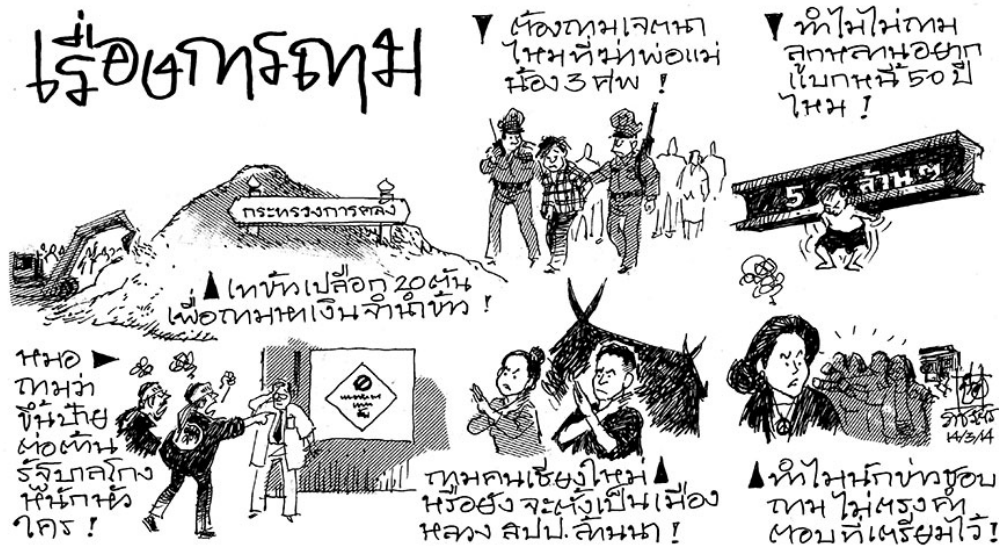 เรื่องการถาม
ต้องถามเจตนา
ไหมที่ฆ่าพ่อแม่
น้อง 3 ศพ !
ทำไมไม่ถาม
ลูกหลานอยาก
แบกหนี้ 50 ปี
ไหม !
กระทรวงการคลัง
5 ล้านล
เทข้าวเปลือก 20 ตัน
เพื่อถามหาเงินจำนำข้าว !
หมอ
ถามว่า
ขึ้นป้าย
ต่อต้าน
รัฐบาลโกง
หนักหัว
ใคร !
ถามคนเชียงใหม่
หรือยัง จะตั้งเป็นเมือง
หลวง สปป.ล้านนา !
ทำไมนักข่าวชอบ
ถาม ไม่ตรงคำ
ตอบที่เตรียมไว้ !
14/3/14